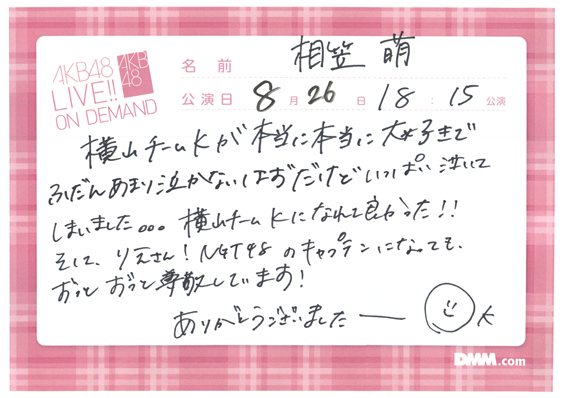 AKB48
LIVE!!
ON DEMAND
AKB
48
名前 相笠 萌
公演日 8月26日 18:15公演
横山チームKが本当に本当に大好きで
ふだんあまり泣かないはずだけどいっぱい泣いて
しまいました。。。横山チームKになれて良かった!!
そして、りえさん!NGT48のキャプテンになっても、
ずっとずっと尊敬しています!
ありがとうございましたー
K
DMM.com